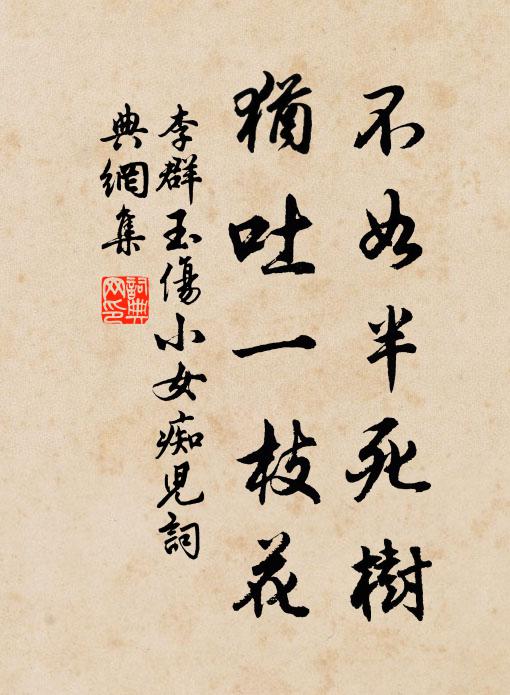 不如半死樹
猶吐一枝花
李群玉傷小女痴兒詞
典網集
詞典
网印